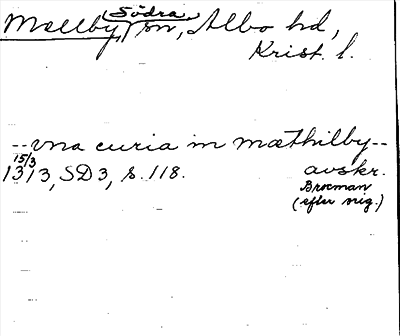 Mellby, (Södra) sn, Albo hd,
Krist. l.
--vna curia in mæthilby--
15/3
1313, SD3, s. 118. avskr.
Brocman
(efter orig.)